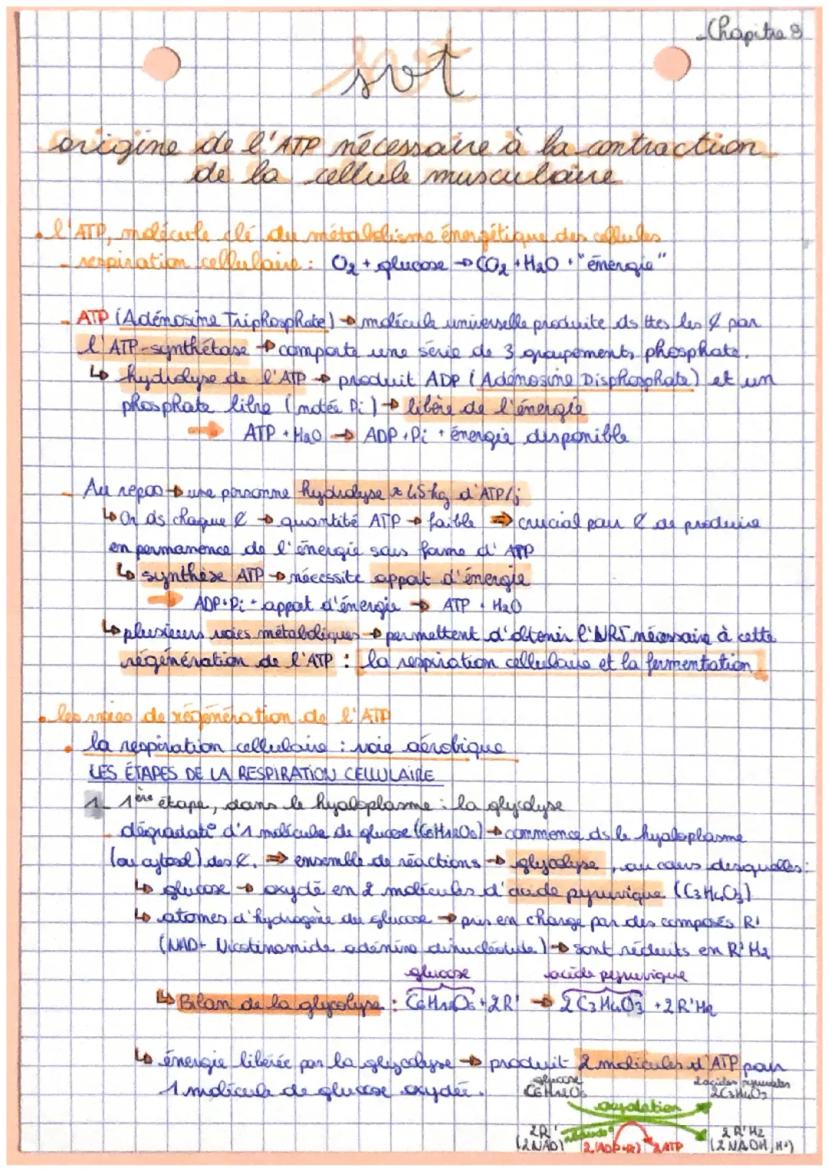 Chapitre 8
svt
origine de l'ATP nécessaire à la contraction
de la cellule musculaire
• l'ATP, molécule clé du métabolisme énergétique des cellules
- respiration cellulaire : O2 + glucose → CO2 + H2O + "énergie"
- ATP (Adénosine TriPhosphate) → molécule universelle produite ds ttes les ¢ par
l'ATP-synthétase → comporte une série de 3 groupements phosphate.
↳ hydrolyse de l'ATP → produit ADP (Adénosine Disphosphate) et un
phosphate libre (notée Pi) → libère de l'énergie
⇒ ATP + H2O → ADP + Pi + énergie disponible
- Au repos → une personne hydrolyse ≈ 45 kg d'ATP/j
↳ Or ds chaque ¢ → quantité ATP → faible ⇒ crucial pour ¢ de produire
en permanence de l'énergie sous forme d'ATP
↳ synthèse ATP → nécessite apport d'énergie
⇒ ADP + Pi + apport d'énergie → ATP + H2O
↳ plusieurs voies métaboliques → permettent d'obtenir l'NRJ nécessaire à cette
régénération de l'ATP : la respiration cellulaire et la fermentation
• les voies de régénération de l'ATP
• la respiration cellulaire : voie aérobique
LES ÉTAPES DE LA RESPIRATION CELLULAIRE
1 - 1ère étape, dans le hyaloplasme : la glycolyse
- dégradat° d'1 molécule de glucose (C6H12O6) → commence ds le hyaloplasme
(ou cytosol) des ¢. ⇒ ensemble de réactions → glycolyse, au cours desquelles :
↳ glucose → oxydé en 2 molécules d'acide pyruvique (C3H4O3)
↳ atomes d'hydrogène du glucose → pris en charge par des composés R'
(NAD+ Nicotinamide adénine dinucléotide) → sont réduits en R'H2
glucose acide pyruvique
↳ Bilan de la glycolyse : C6H12O6 + 2R' → 2C3H4O3 + 2R'H2
↳ énergie libérée par la glycolyse → produit 2 molécules d'ATP pour
1 molécule de glucose oxydée.
glucose 2 acides pyruvates
C6H12O6 2C3H4O3
oxydation
2R' 2R'H2
(2NAD) 2(ADP+Pi) 2ATP (2NADH, H+)